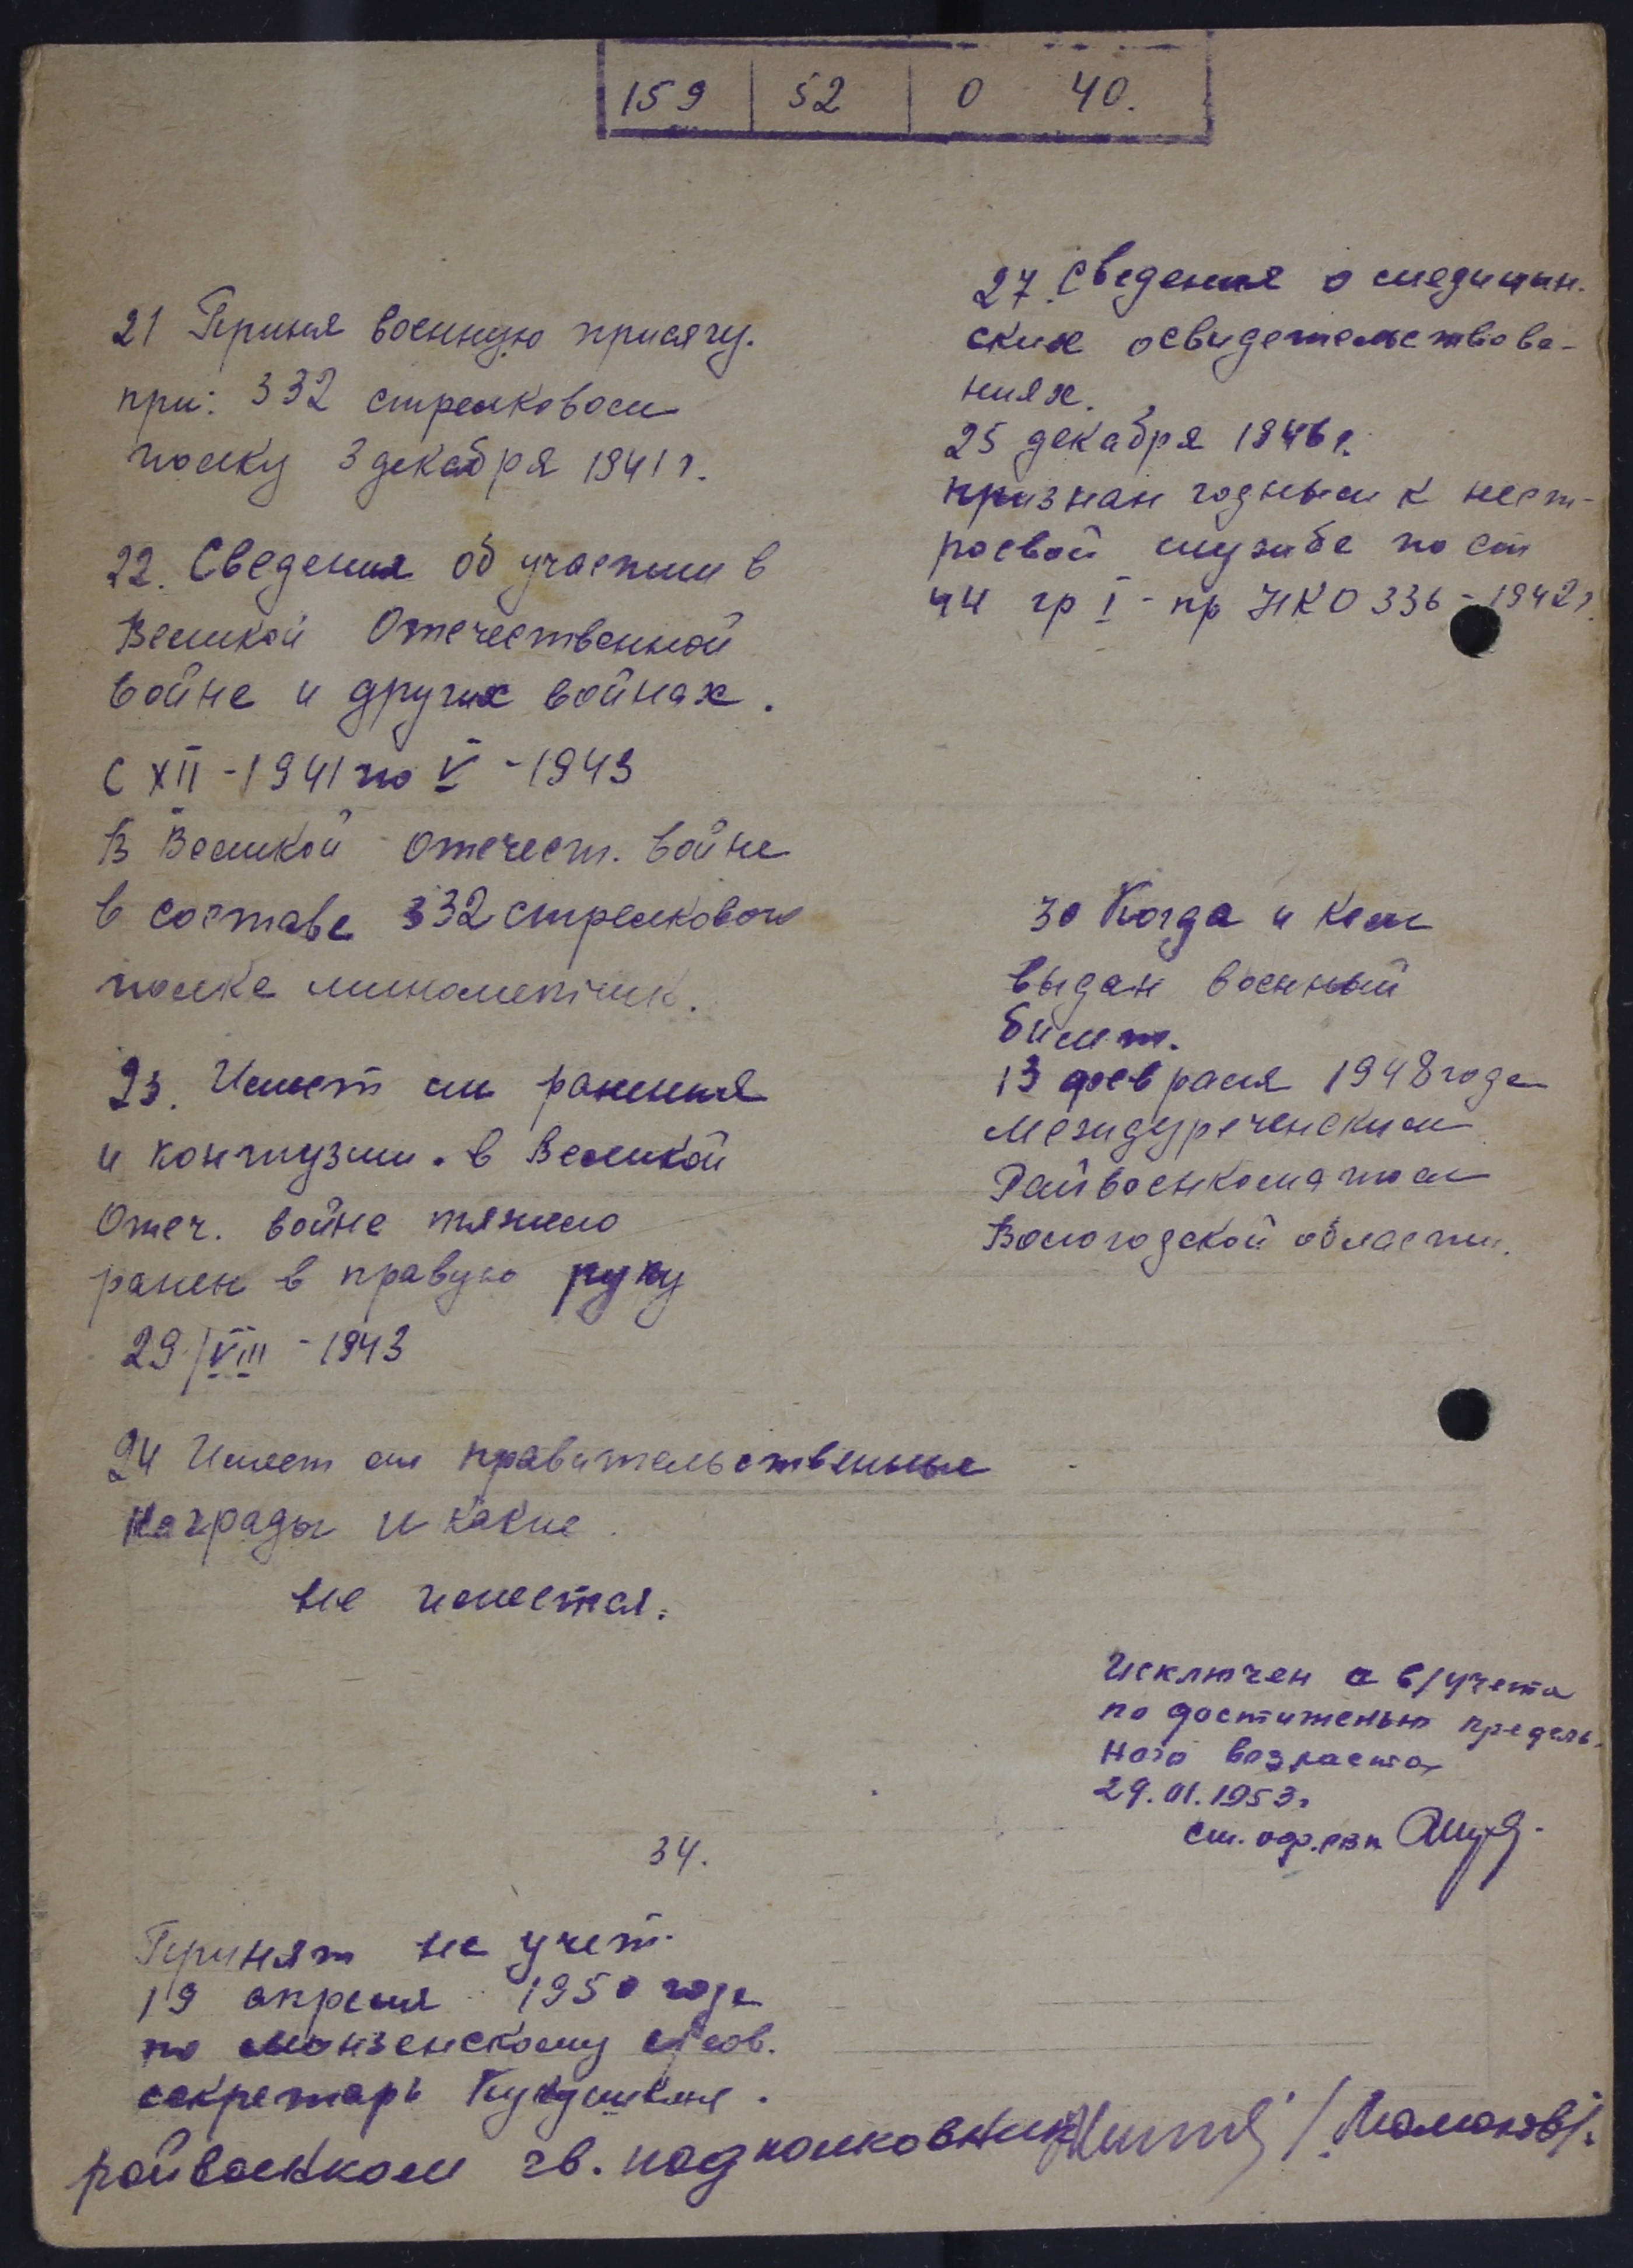 159 52 0 40.
21 Приня военную присягу.
при: 332 стрелковом
полку 3 декабря 1941 г.
22. Сведения об участии в
Великой Отечественной
войне и других войнах.
с XII - 1941 по V - 1943
В Великой Отечест. войне
в составе 332 стрелкового
полка минометчик.
23. Имеет ли ранения
и контузии. в Великой
Отеч. войне тяжело
ранен в правую руку
29/VIII - 1943
24 Имеет ли правительственные
награды и какие.
не имеется.
34.
Принят на учет
19 апреля 1950 года
по Монзенскому с/сов.
секретарь
27. Сведения о медицин-
ских освидетельствова-
ниях.
25 декабря 1946 г.
признан годным к нест-
роевой службе по ст
44 гр I - пр НКО 336 - 1942 г.
30 Когда и кем
выдан военный
билет.
13 февраля 1948 года
Междуреченским
Райвоенкоматом
Вологодской области.
Исключен с в/учета
по достиженью предель-
ного возраста
29.01.1953г
ст. оф.
райвоенком гв. подполковник